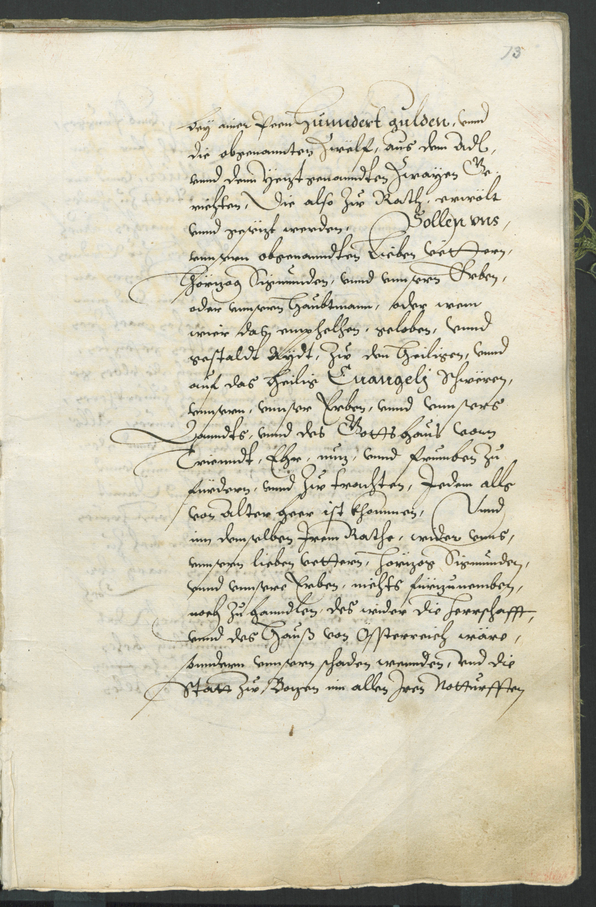 13
bey ainer Peen Hunndert gulden, vnnd
die obgenannten Zwelf, aus dem Adl,
vnnd dem yetzt genanndten Zwayen Ge
richten, Die also zu Rath, erwölt
vnnd gesetzt werden, Sollen vns,
vnnsern obgenanndten Lieben vettern,
Hörtzog Sigmunden, vnnd vnnsern Erben,
oder vnnserm Haubtmann, oder wem
wier das emphelhen, geloben, vnnd
gestaldt Aydt, zu den Heiligen, vnnd
auf das Heilig Euangelj Schwören,
vnnsern, vnnser Erben, vnnd vnnsers
Lanndts, vnnd des Gottshaus vonn
Triennt, Ehr, nuz, vnnd frumben zu
fürdern, vnnd zu trachten, Jedem alls
von alter heer ist khommen, Vnnd
inn demselben Jrem Rathe, wider vnns,
vnnsern lieben vettern, Hörtzog Sigmunden,
vnnd vnnsere Erben, nichts fürzunemben,
noch zu hanndlen, des wider die Herrschafft,
vnnd des Hauß von Össterreich wäre,
sonndern vnnsern schaden wennden, vnd die
Statt zu Bozen inn allen Jren Notturfften